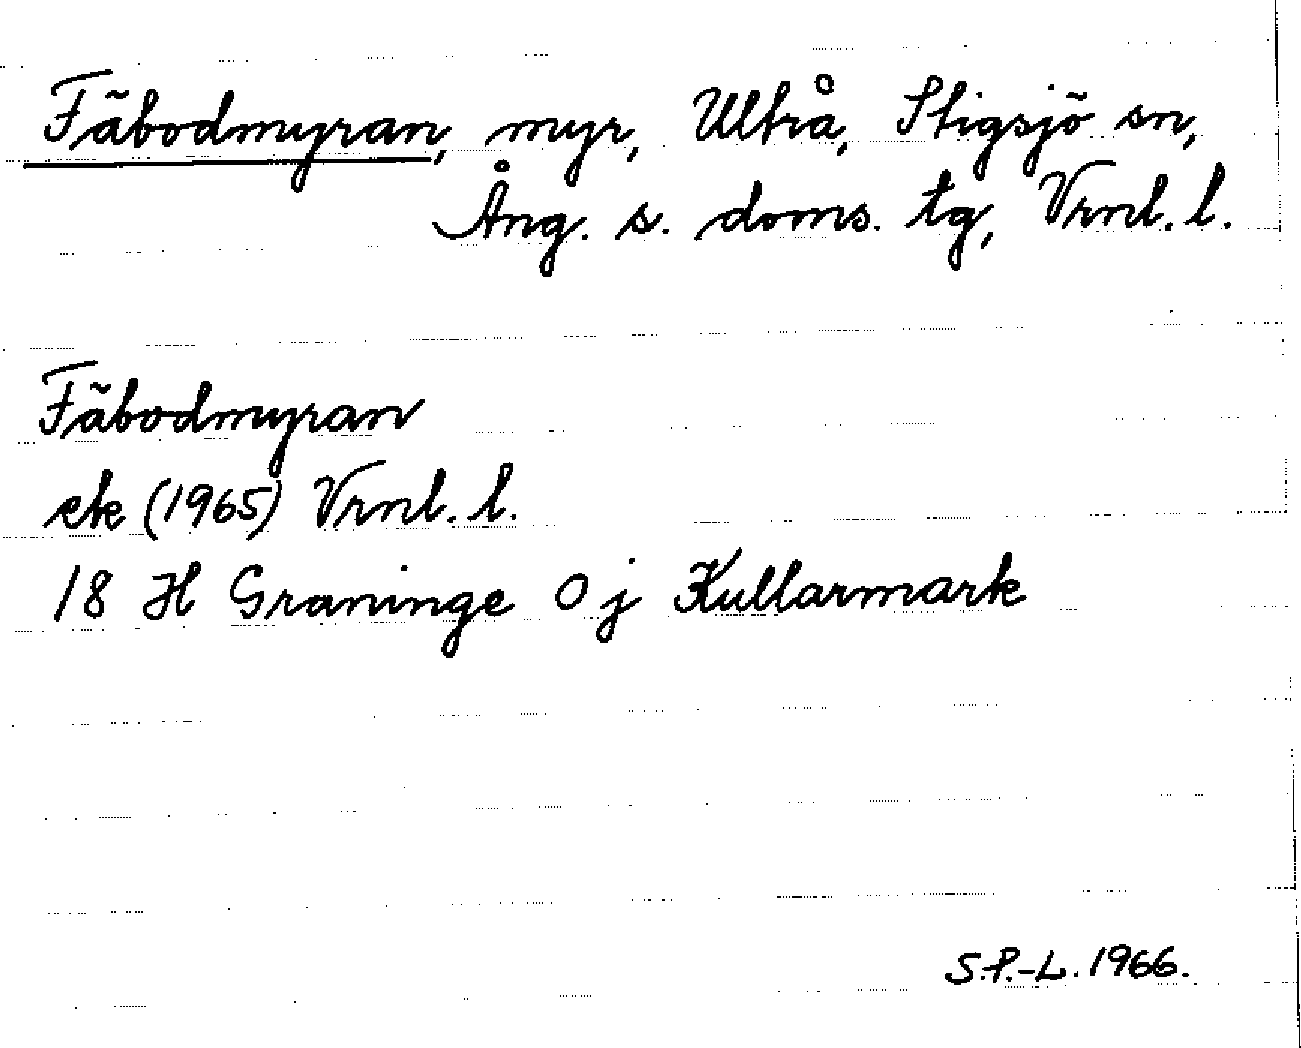 Fäbodmyran, myr, Ultrå, Stigsjö sn,
Ång. s. doms. tg, Vrnl. l.
Fäbodmyran
ek (1965) Vrnl. l.
18 H Graninge 0 j Kullarmark
S.P.-L. 1966.